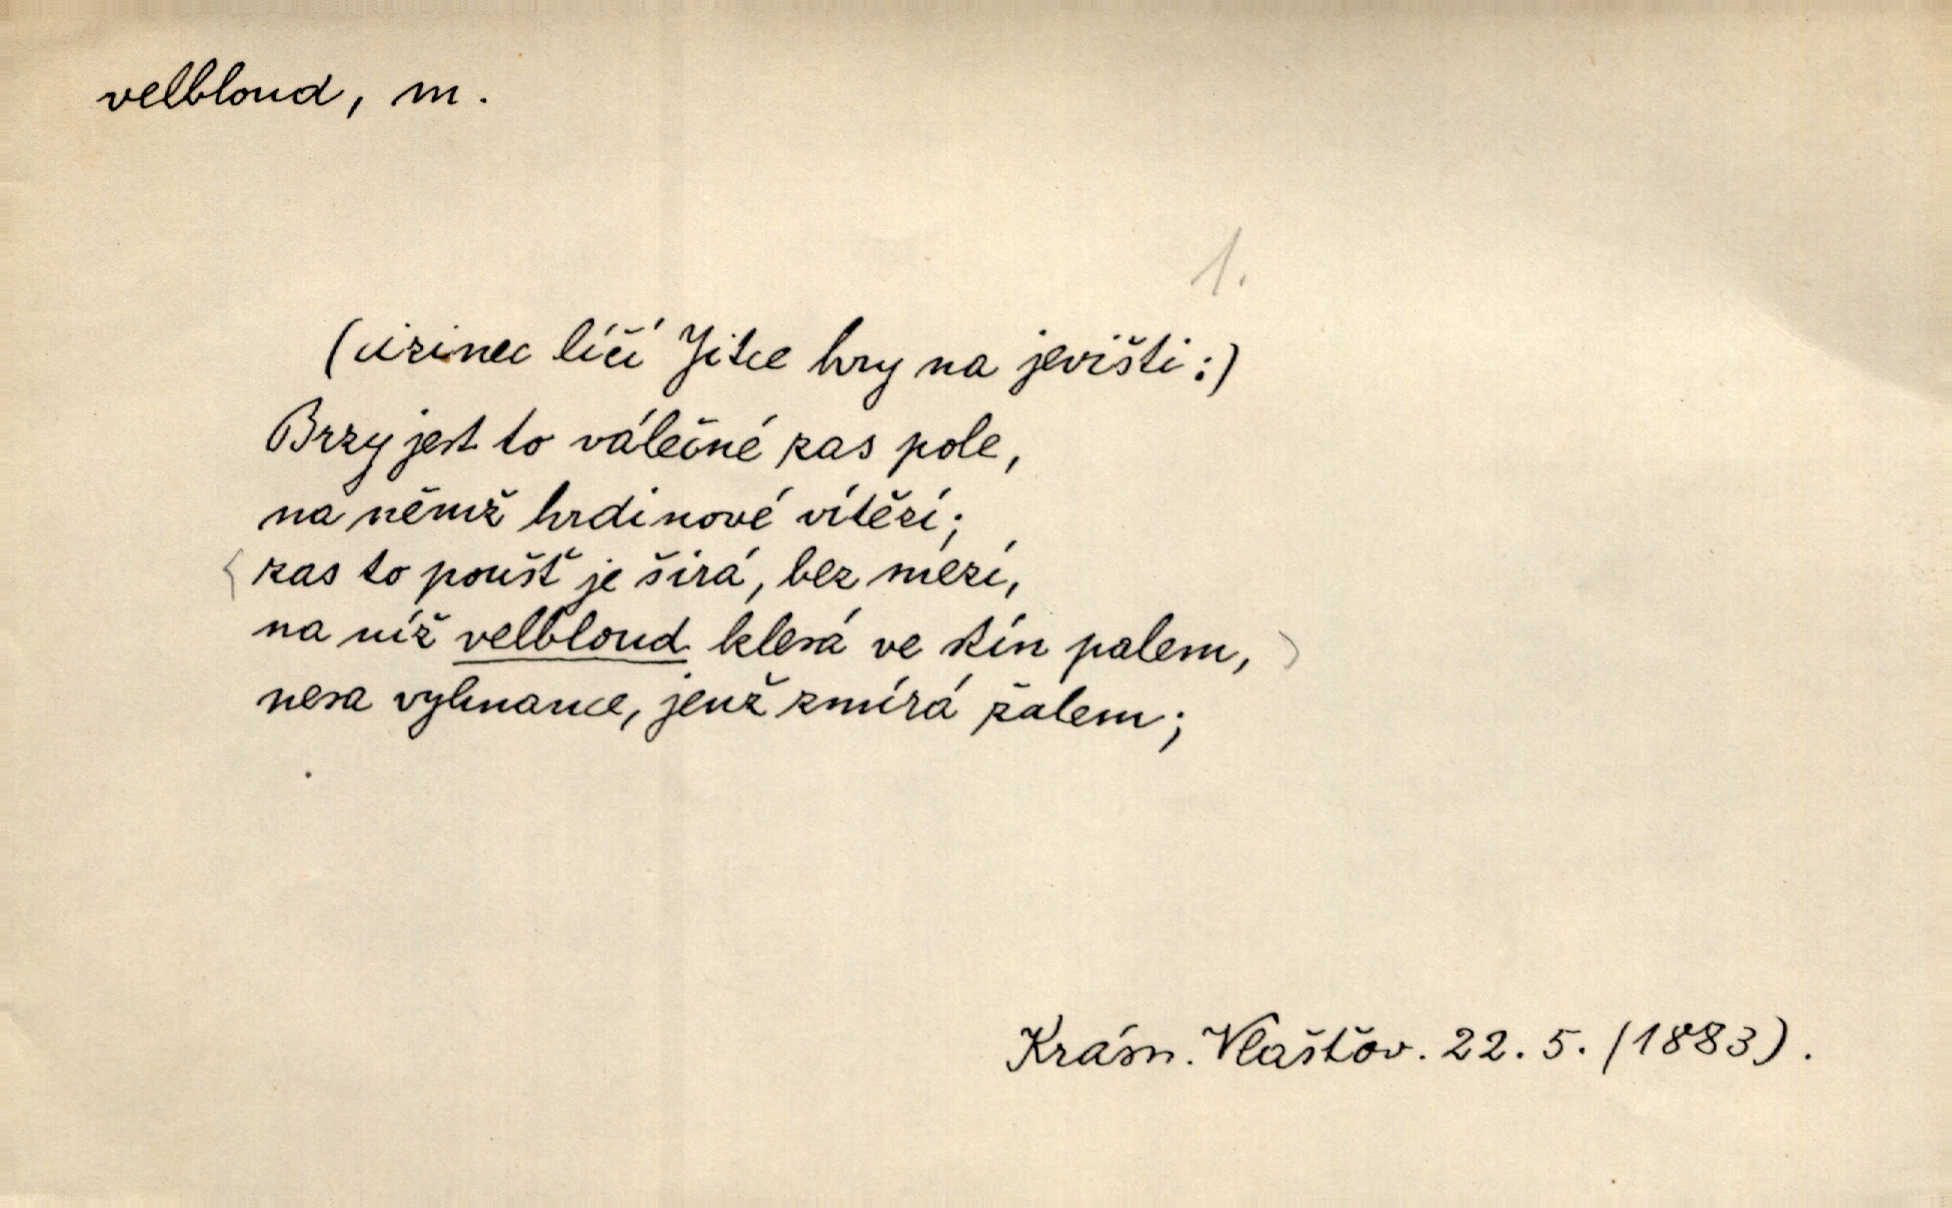 velbloud, m.
1.
(cizinec líčí Jitce hry na jevišti:)
Brzy jest to válečné zas pole,
na němž hrdinové vítězí;
zas to poušť je širá, bez mezí,
na níž velbloud klesá ve stín palem,
nesa vyhnance, jenž zmírá žalem;
Krásn. Vlaštov. 22. 5. (1883).